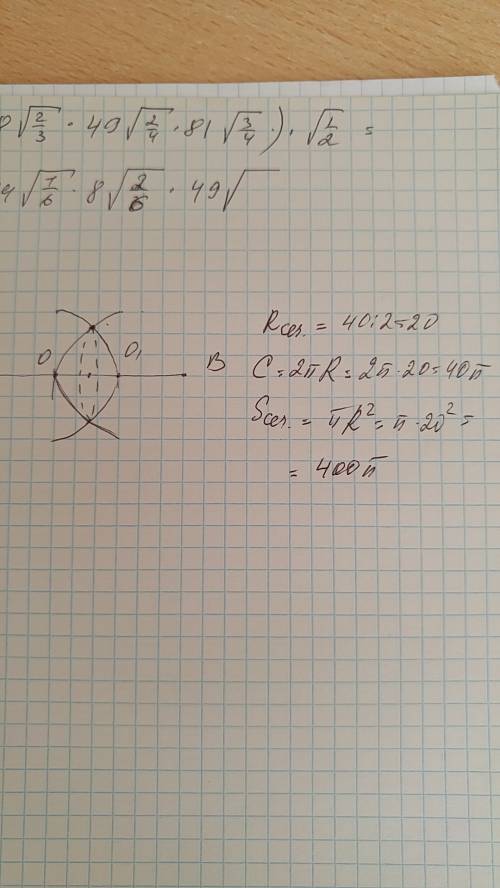 8√(2/3) · 49√(2/4) · 81√(3/4) ·) · √(1/2) =
4√(1/6) · 8√(2/6) · 49√
Rсеч. = 40:2=20
O O₁ B
C = 2πR = 2π·20 = 40π
Sсеч. = πR² = π·20² =
= 400π